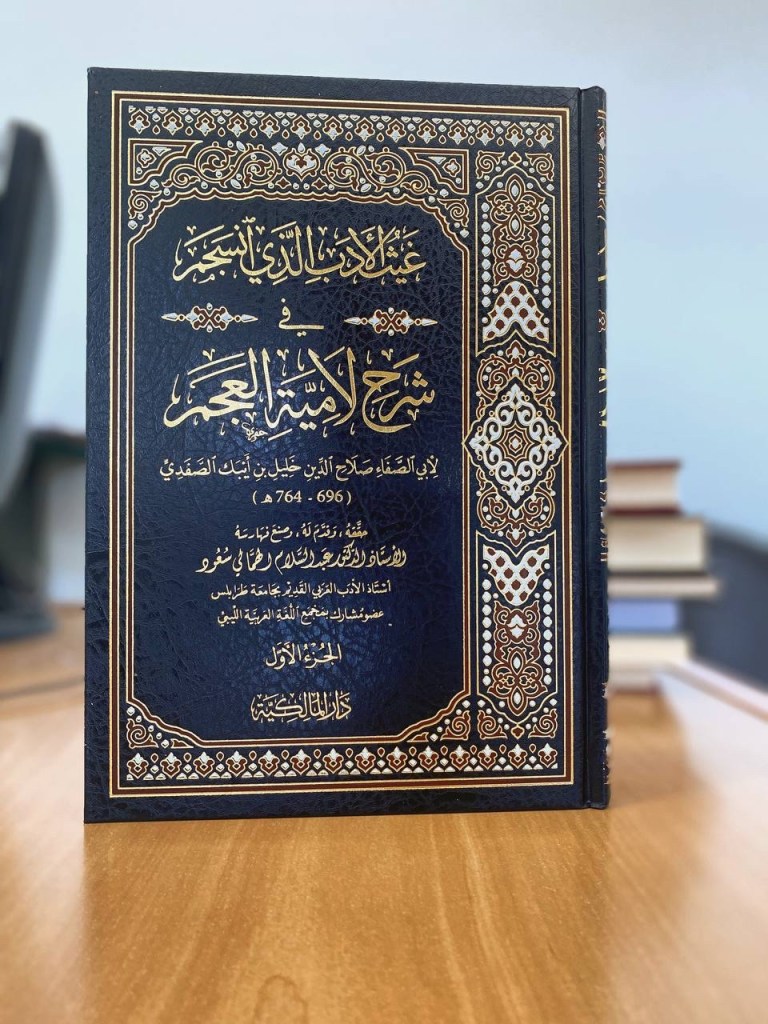 غَيْثُ الْأَدَبِ الَّذِي ٱنْسَجَمَ
فِي
شَرْحِ لَامِيَّةِ الْعَجَمِ
لِأَبِي ٱلصَّفَاءِ صَلَاحِ ٱلدِّينِ خَلِيلِ بْنِ أَيْبَكَ ٱلصَّفَدِيِّ
(696 - 764 هـ)
حقَّقَهُ، وَقَدَّمَ لَهُ، وصَنَعَ فَهَارِسَهُ
الأستاذ الدكتور عبد السلام الهمالي سعود
أستاذ الأدب العربي القديم بجامعة طرابلس
عضو مشارك بمجمع اللغة العربية الليبي
الجُزْءُ الأَوَّلُ
دَارُ المَالِكِيَّةِ